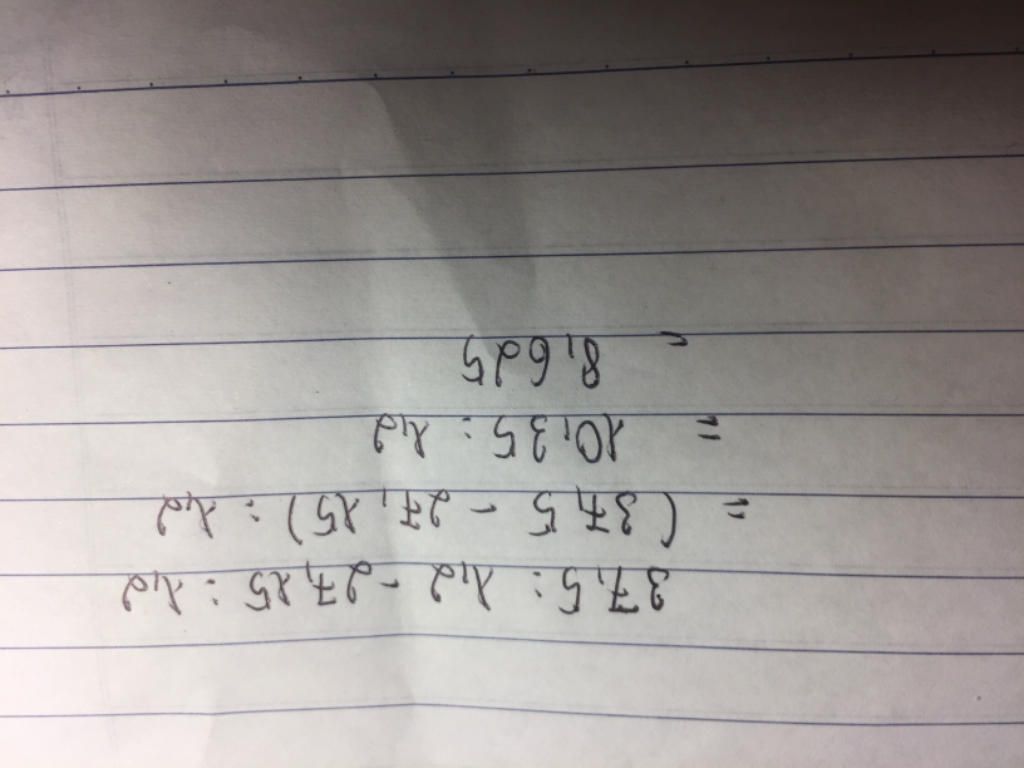 37,5 : 1,2 - 27,15 : 1,2
= (37,5 - 27,15) : 1,2
= 10,35 : 1,2
= 8,625